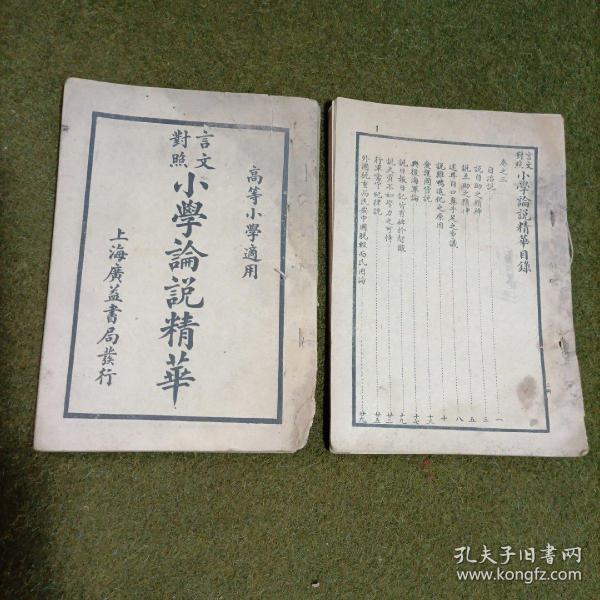 高等小學適用
言文對照
小學論說精華
上海廣益書局發行
言文對照小學論說精華目錄
卷之一
自治說 一
說自助之精神 三
說互助之精神 五
述耳目口鼻手足之爭議 八
說雞鴨進化之原因 十
愛護國貨說 十三
興復海軍論 十七
說日報日記皆有益於智識 十九
說天資不如學力之可恃 廿二
行軍當守紀律說 廿五
外國純重商民安中國脫離商民困論 廿九
孔夫子旧书网
www.kongfz.com